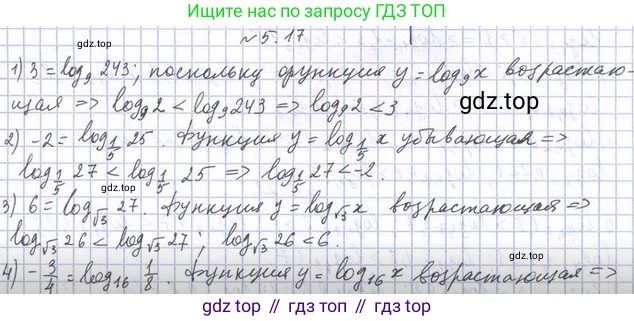 Ищите нас по запросу ГДЗ ТОП
№ 5.17
gdz.top
1) 3 = log₉ 243; поскольку функция y = log₉ x возрастаю-
щая => log₉ 2 < log₉ 243 => log₉ 2 < 3.
gdz.top
2) -2 = log_{1/5} 25. Функция y = log_{1/5} x убывающая =>
log_{1/5} 27 < log_{1/5} 25 => log_{1/5} 27 < -2.
gdz.top
3) 6 = log_{√3} 27. Функция y = log_{√3} x возрастающая =>
log_{√3} 26 < log_{√3} 27; log_{√3} 26 < 6.
gdz.top
4) -3/4 = log₁₆ 1/8. Функция y = log₁₆ x возрастающая =>
gdz top // гдз топ // gdz.top